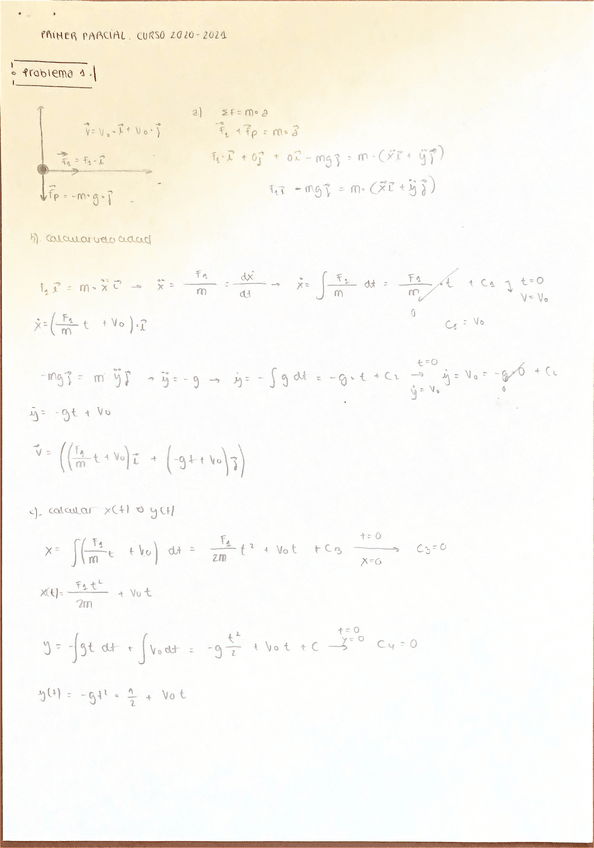 PRIMER PARCIAL. CURSO 2020-2021
Problema 1.
a) ΣF = m·a
v⃗ = V₀·i⃗ + V₀·j⃗
F⃗₁ + F⃗p = m·a⃗
F⃗₁ = F₁·i⃗
F₁·i⃗ + 0j⃗ + 0i⃗ - mgj⃗ = m·(ẍi⃗ + ÿj⃗)
F⃗p = -m·g·j⃗
F₁i⃗ - mgj⃗ = m·(ẍi⃗ + ÿj⃗)
b). calcular velocidad
F₁i⃗ = m·ẍi⃗ → ẍ = F₁/m = dẋ/dt → ẋ = ∫ F₁/m dt = F₁/m · t + C₁ t=0 V=V₀
0 C₁ = V₀
ẋ = (F₁/m t + V₀)·i⃗
-mgj⃗ = m ÿj⃗ → ÿ = -g → ẏ = -∫g dt = -g·t + C₂ → t=0 ẏ=V₀ ẏ = V₀ = -g·0 + C₂
0
ẏ = -gt + V₀
v⃗ = ((F₁/m t + V₀)i⃗ + (-gt + V₀)j⃗)
c). calcular x(t) e y(t)
x = ∫(F₁/m t + V₀) dt = F₁/2m t² + V₀t + C₃ → t=0 x=0 C₃=0
x(t) = F₁t²/2m + V₀t
y = -∫gt dt + ∫V₀dt = -g t²/2 + V₀t + C → t=0 y=0 C₄=0
y(t) = -gt² · 1/2 + V₀t